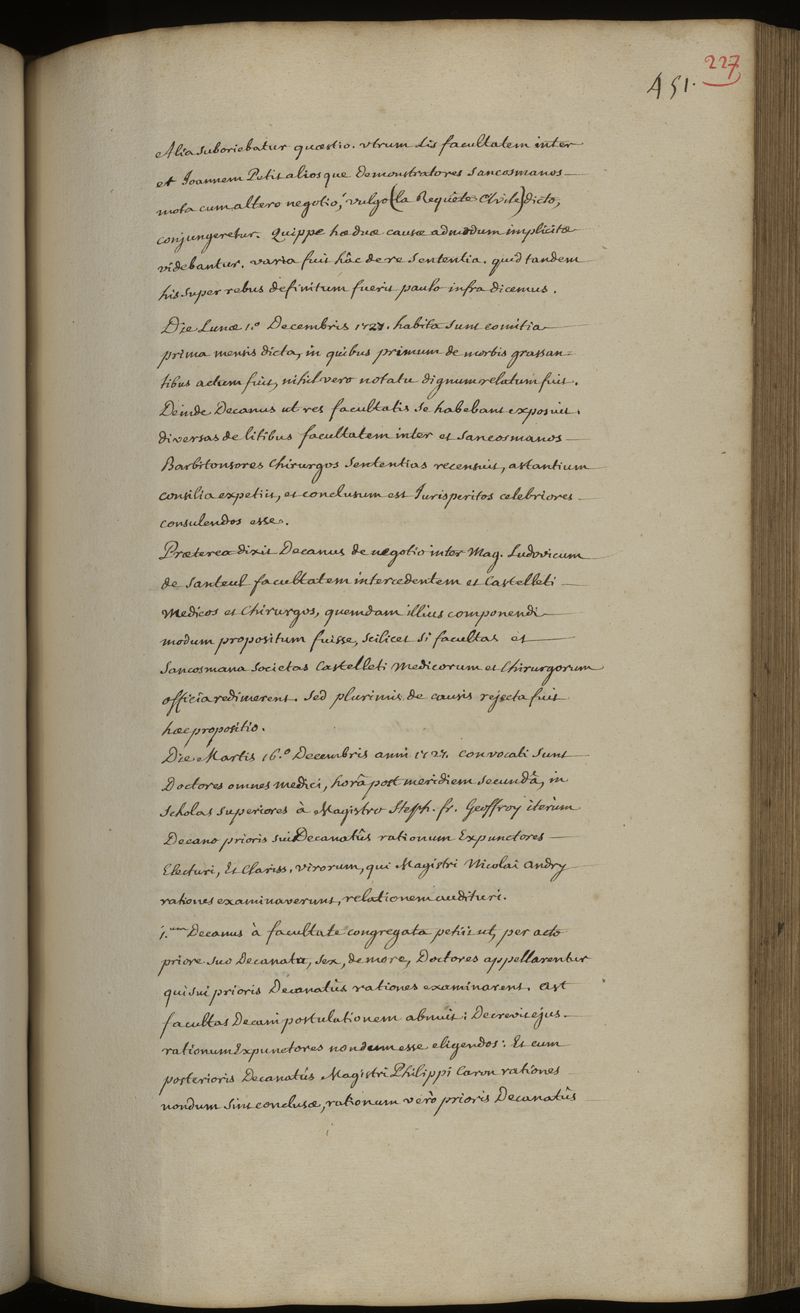 227
451.
Alia suboriebatur quæstio. utrum Lis facultatem inter
et Joannem Petit aliosque Demonstratores Sancosmanos
mota cum altero negotio, vulgo (la Requête Civile) dicto,
conjungeretur. Quippe hæ duæ causæ admodum implicitæ
videbantur. varia fuit hâc de re Sententia. quid tandem
his super rebus definitum fuerit paulo infra dicemus.
Die Lunæ 1.ª Decembris 1727. habita sunt comitia
prima mensis dicta, in quibus primum de morbis grassan=
tibus actum fuit, nihil vero notatu dignum relatum fuit.
Deinde Decanus ut res facultatis se habebant exposuit.
diversas de litibus facultatem inter et Sancosmanos
Barbitonsores Chirurgos Sententias recensuit, astantium
consilia expetiit, et conclusum est Jurisperitos celebriores
consulendos esse.
Præterea dixit Decanus de negotio inter Mag. Ludovicum
de Santeul facultatem intercedentem et Castelleti
Medicos et Chirurgos, quemdam illius componendi
modum propositum fuisse, scilicet si facultas et
Sancosmana Societas Castelleti Medicorum et Chirurgorum
officia redimerent. Sed plurimis de causis rejecta fuit
hæc propositio.
Die Martis 16.ª Decembris anni 1727. convocati sunt
Doctores omnes medici, horâ post meridiem secundâ, in
Scholas Superiores à Magistro Steph. fr. Geoffroy iterùm
Decano prioris sui Decanatûs rationum Expunctores
Electuri, Et Clariss. virorum, qui Magistri Nicolai Andry
rationes examinaverunt, relationem audituri.
1.um Decanus à facultate congregata petiit ut, per acto
priore suo Decanatu, sex, de more, Doctores appellarentur
qui sui prioris Decanatûs rationes examinarent. Ast
facultas Decani postulationem abnuit; Decrevit ejus
rationum Expunctores nondum esse eligendos. Et cum
posterioris Decanatûs Magistri Philippi Caron rationes
nondum sint conclusæ, rationum verò prioris Decanatûs